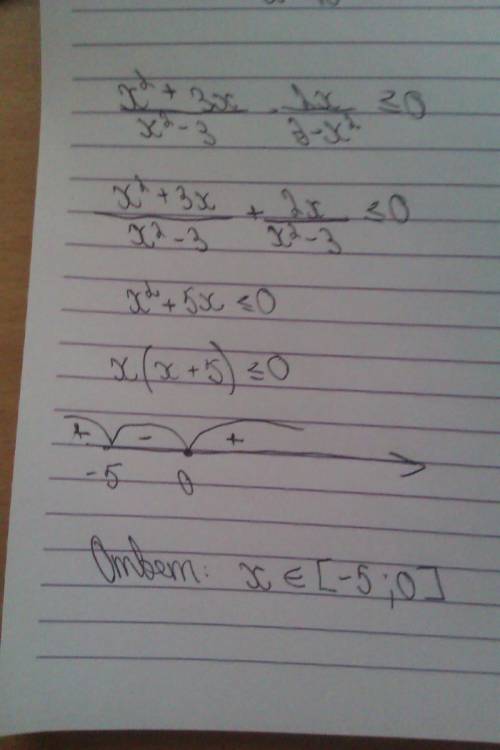 x² + 3x / x² - 3 - 2x / 3 - x² ≤ 0
x² + 3x / x² - 3 + 2x / x² - 3 ≤ 0
x² + 5x ≤ 0
x(x + 5) ≤ 0
+ - +
-5 0
Ответ: x ∈ [-5; 0]